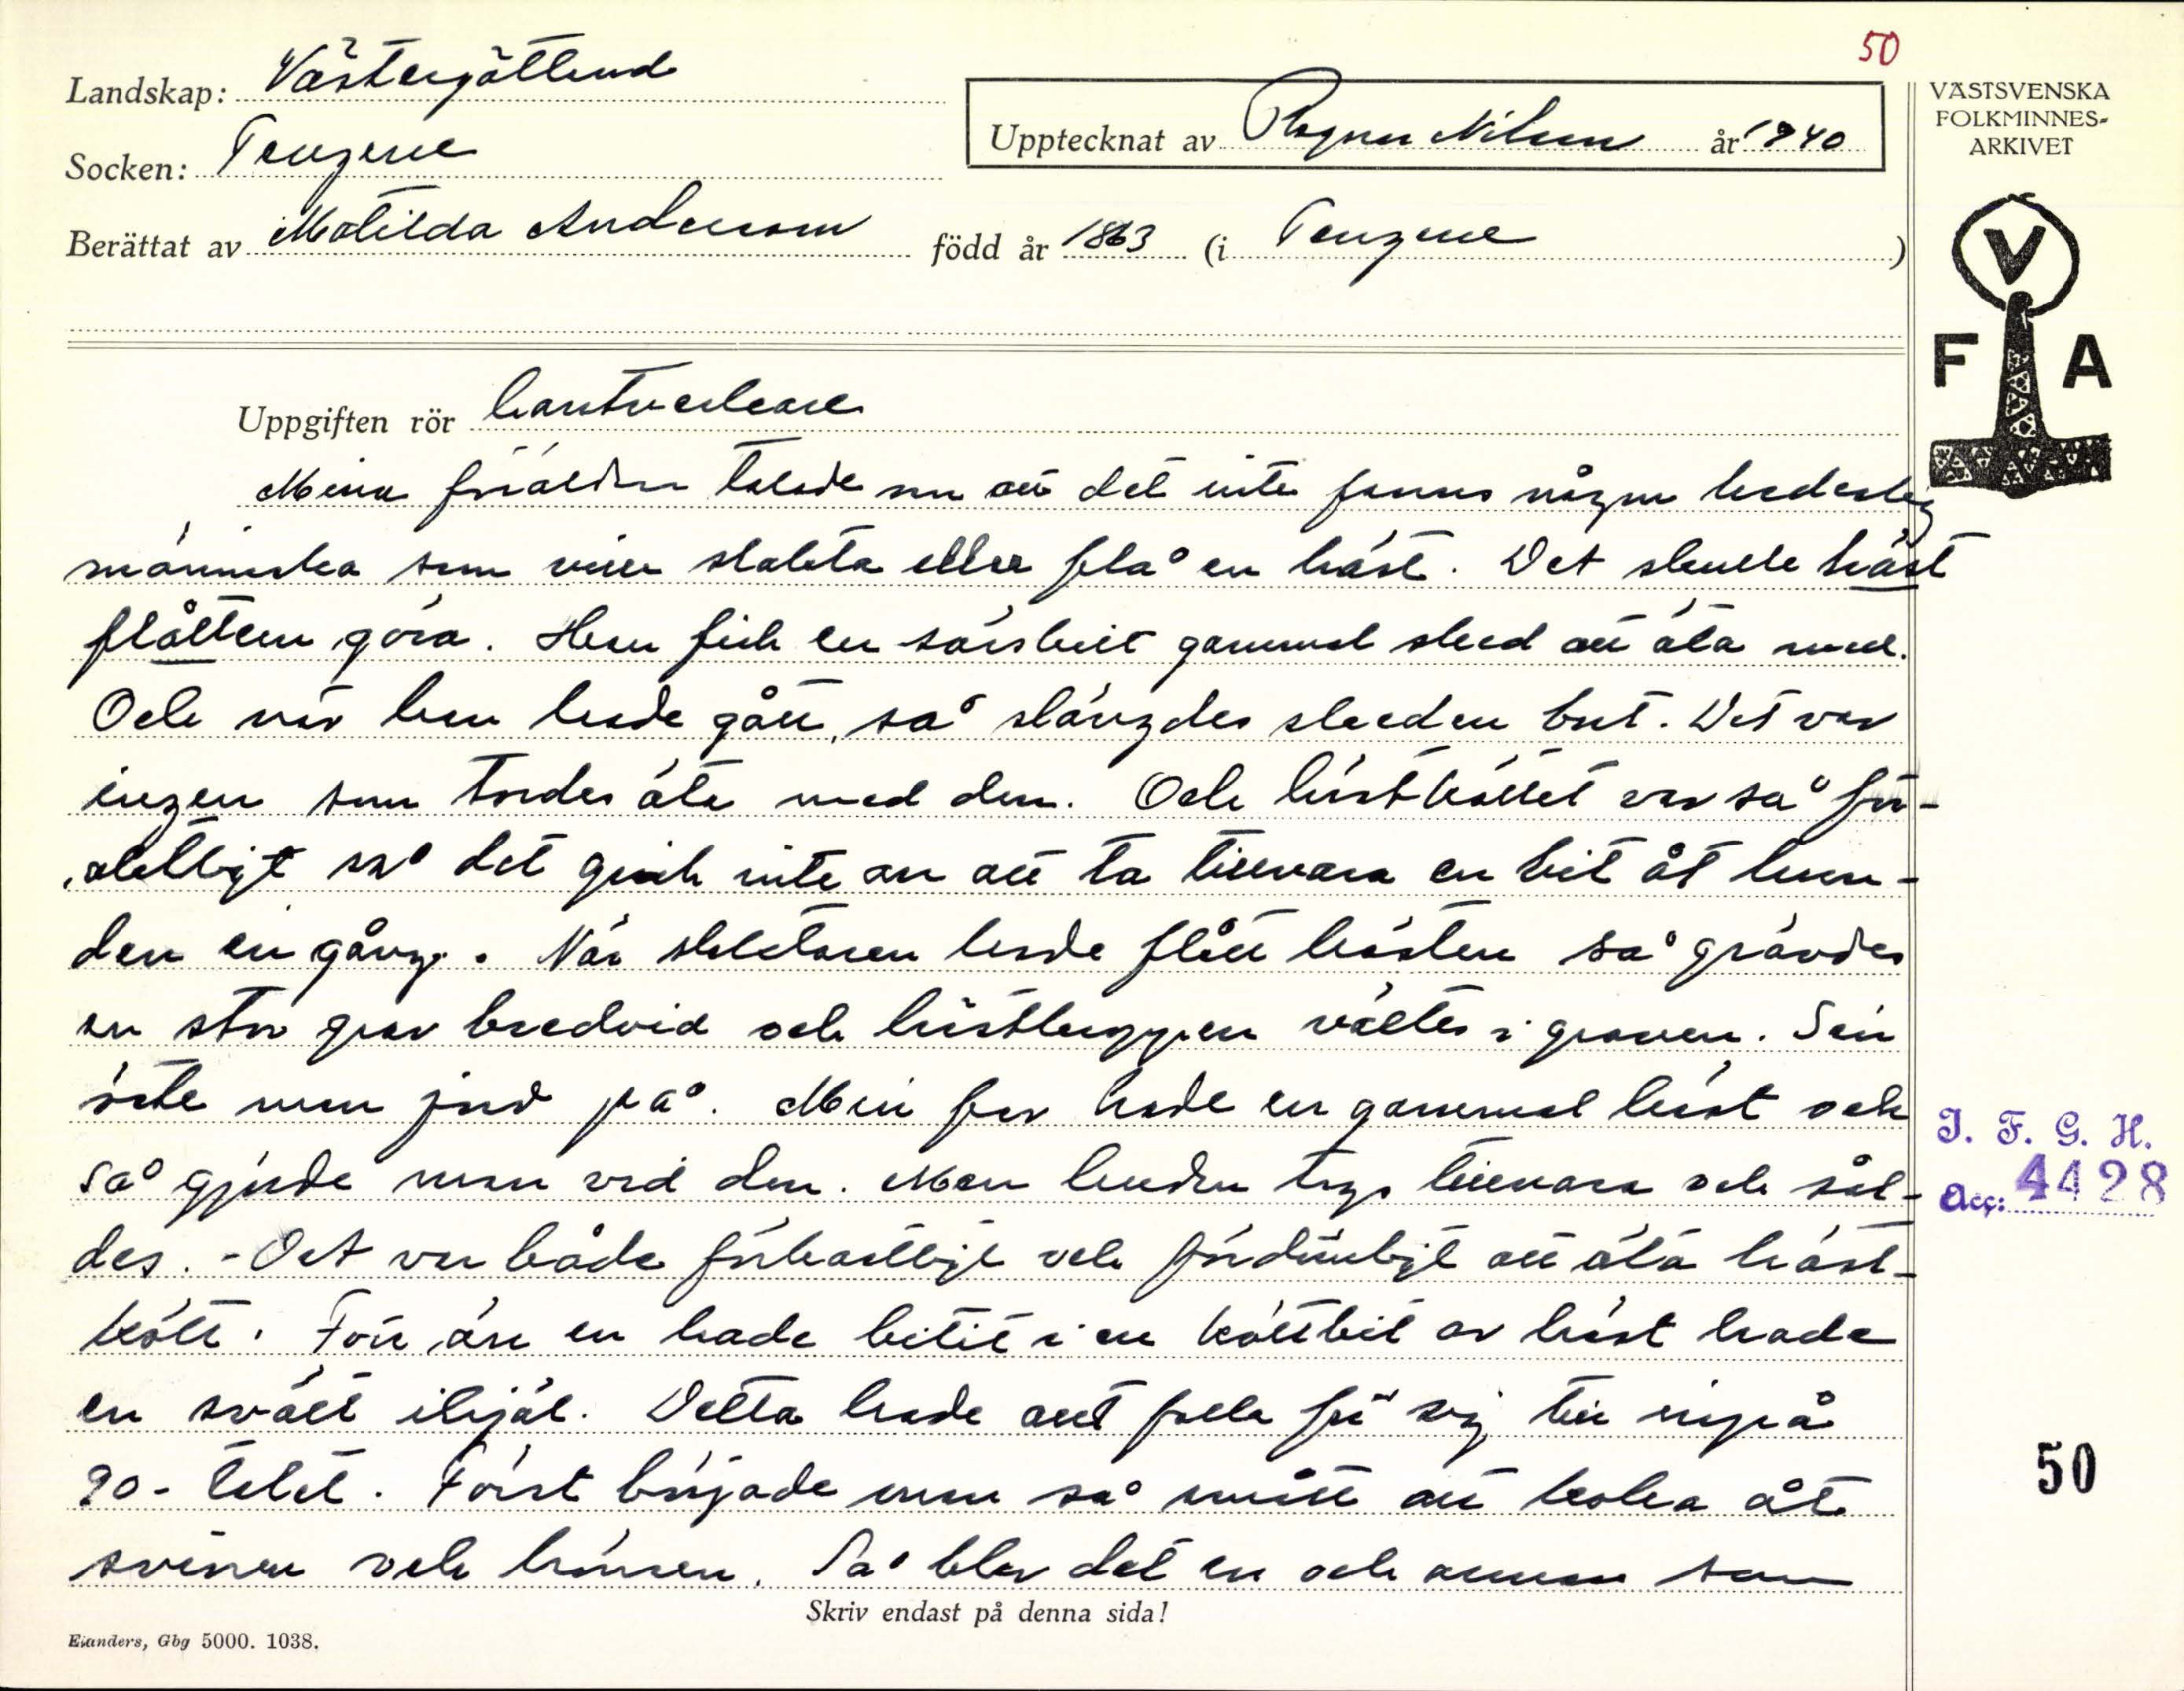 50
Landskap: Västergötland
Socken: Tengene
Upptecknat av Ragnar Nilsson år 1940
Berättat av Matilda Andersson född år 1863 (i Tengene)
VÄSTSVENSKA
FOLKMINNES-
ARKIVET
V
F A
Uppgiften rör hantverkare
Mina föräldrar talade om att det inte fanns någon hederlig
människa som ville slakta eller flå en häst. Det skulle häst
flåttern göra. Han fick en särskilt gammal sked att äta med.
Och när han hade gått, så slängdes skeden bort. Det var
ingen som tordes äta med den. Och hästköttet var så för-
aktligt så det gick inte an att ta tillvara en bit åt hun-
den en gång. När slaktaren hade flått hästen så grävdes
en stor grav bredvid och hästkroppen vältes i graven. Sen
öste man jord på. Min far hade en gammal häst och
så gjorde man vid den. Men huden togs tillvara och sål-
des. - Det var både förhastligt och fördömligt att äta häst-
kött. Förr än en hade bitit i en köttbit av häst hade
en svält ihjäl. Detta hade allt folk för sig till inpå
90-talet. Först började man så smått att koka åt
svinen och hönsen. Så blev det en och annan som
I. F. G. H.
Acc: 4428
50
Skriv endast på denna sida!
Elanders, Gbg 5000. 1038.